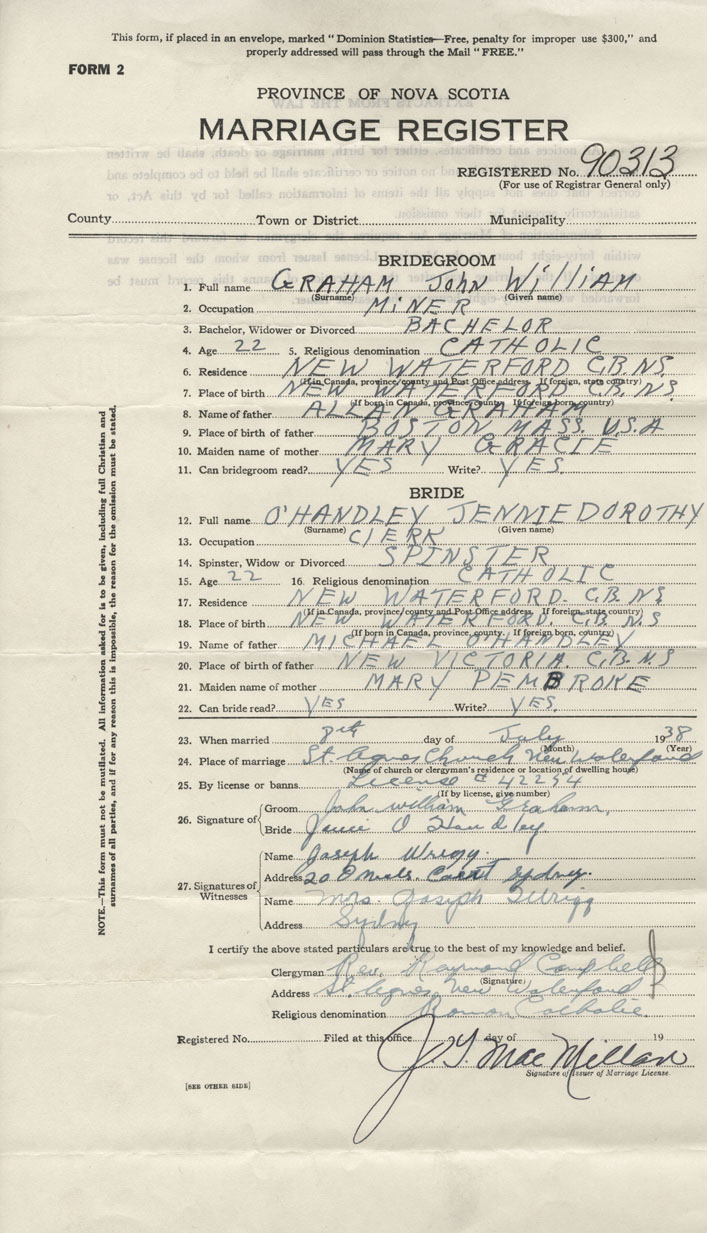 This form, if placed in an envelope, marked "Dominion Statistics—Free, penalty for improper use $300," and
properly addressed will pass through the Mail "FREE."
FORM 2
PROVINCE OF NOVA SCOTIA
MARRIAGE REGISTER
REGISTERED No. 90313
(For use of Registrar General only)
County Town or District Municipality
BRIDEGROOM
1. Full name GRAHAM John William
(Surname) (Given name)
2. Occupation MINER
3. Bachelor, Widower or Divorced BACHELOR
4. Age 22 5. Religious denomination CATHOLIC
6. Residence NEW WATERFORD C.B. N.S.
(If in Canada, province/county and Post Office address. If foreign, state country)
7. Place of birth NEW WATERFORD C.B. N.S.
(If born in Canada, province, county. If foreign born, country)
8. Name of father ALLAN GRAHAM
9. Place of birth of father BOSTON MASS. U.S.A
10. Maiden name of mother MARY GRACIE
11. Can bridegroom read? YES Write? YES.
BRIDE
12. Full name O'HANDLEY JENNIE DOROTHY
(Surname) (Given name)
13. Occupation ClERK
14. Spinster, Widow or Divorced SPINSTER
15. Age 22 16. Religious denomination CATHOLIC
17. Residence NEW WATERFORD. C.B. N.S
(If in Canada, province/county and Post Office address. If foreign, state country)
18. Place of birth NEW WATERFORD. C.B. N.S
(If born in Canada, province, county. If foreign born, country)
19. Name of father MICHAEL O'HANDLEY
20. Place of birth of father NEW VICTORIA C.B. N.S
21. Maiden name of mother MARY PEMBROKE
22. Can bride read? YES Write? YES.
23. When married 8th day of July 1938
(Month) (Year)
24. Place of marriage St. Agnes Church New Waterford
(Name of church or clergyman's residence or location of dwelling house)
25. By license or banns License # 42254
(If by license, give number)
26. Signature of Groom John William Graham,
Bride Jennie O Handley.
27. Signatures of Witnesses Name Joseph
Address 20 Sydney.
Name Mrs. Joseph
Address Sydney
I certify the above stated particulars are true to the best of my knowledge and belief.
Clergyman Rev. Raymond Campbell
(Signature)
Address St. Agnes, New Waterford
Religious denomination Roman Catholic.
Registered No. Filed at this office day of 19
J. Y. MacMillan
Signature of Issuer of Marriage License
[SEE OTHER SIDE]
NOTE.—This form must not be mutilated. All information asked for is to be given, including full Christian and
surnames of all parties, and if for any reason this is impossible, the reason for the omission must be stated.